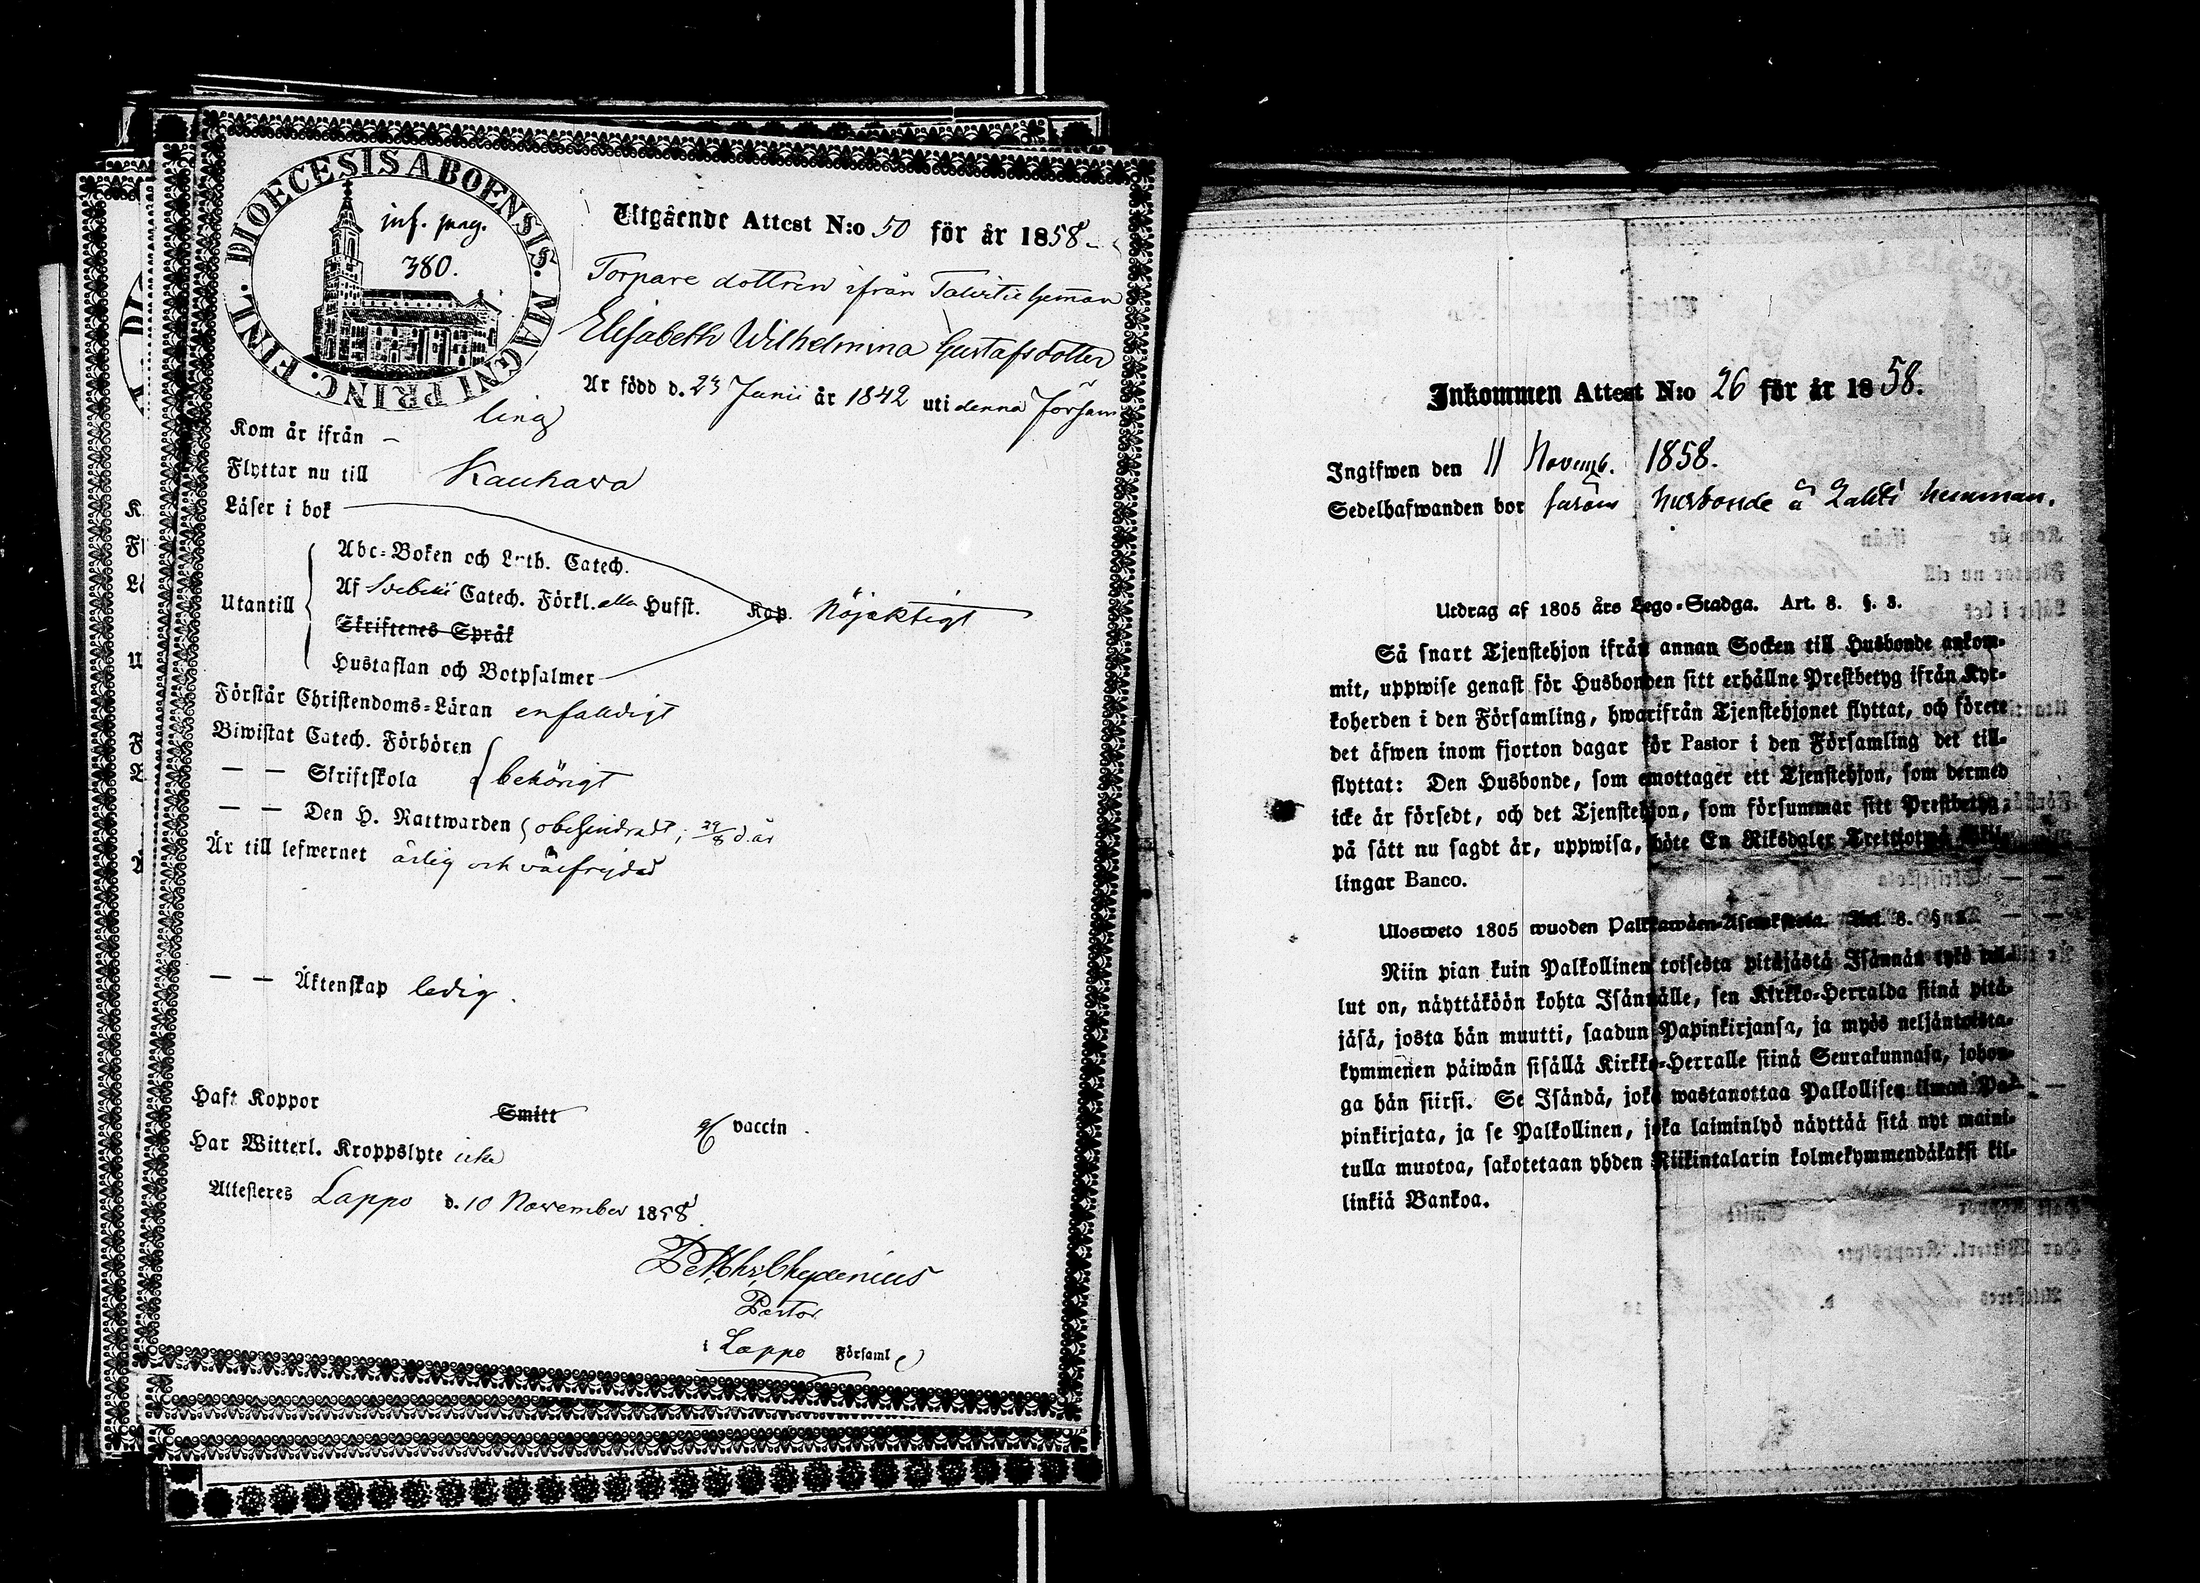 DIOECESIS ABOENSIS. MAGNI PRINC. FINL.
inf. pag.
380.
Utgående Attest N:o 50 för år 1858
Torpare dottren ifrån Talvitie Heman
Elisabeth Wilhelmina Gustafsdotter
Är född d. 23 Junii år 1842 uti denna Försam
ling
Kom år ifrån –
Flyttar nu till Kauhava
Läser i bok
Abc-Boken och Luth. Catech.
Utantill Af Svebelii Catech. Förkl. alla Hufst. Kap. Nöjaktigt
Skriftenes Språk
Hustaflan och Botpsalmer
Förstår Christendoms-Läran enfaldigt
Biwistat Catech. Förhören
— — Skriftskola behörigt
— — Den H. Nattwarden obehindradt, 29/8 d. år
Är till lefwernet ärlig och välfrejdad
— — Äktenskap ledig.
Haft Koppor Smitt af vaccin.
Har Witterl. Kroppslyte icke
Attesteres Lappo d. 10 November 1858
Chydenius
Pastor
i Lappo Församl
Inkommen Attest N:o 26 för år 1858.
Ingifwen den 11 Novemb. 1858.
Sedelhafwanden bor husbonde å Lahti hemman.
Utdrag af 1805 års Lego-Stadga. Art. 8. §. 3.
Så snart Tjenstehjon ifrån annan Socken till Husbonde ankom-
mit, uppwise genast för Husbonden sitt erhållne Prestbetyg ifrån Kyr-
koherden i den Församling, hwarifrån Tjenstehjonet flyttat, och förete
det äfwen inom fjorton dagar för Pastor i den Församling det till-
flyttat: Den Husbonde, som emottager ett Tjenstehjon, som dermed
icke är försedt, och det Tjenstehjon, som försummar sitt Prestbetyg,
på sätt nu sagdt är, uppwisa, böte En Riksdaler Trettiotwå Skil-
lingar Banco.
Ulosweto 1805 wuoden Palkkawäen-Asetuksesta. Art. 8. §
Niin pian kuin Palkollinen toisesta pitäjästä Isännän tykö tul-
lut on, näyttäköön kohta Isännälle, sen Kirkko-Herralda siinä pitä-
jäsä, josta hän muutti, saadun Papinkirjansa, ja myös neljäntoista-
kymmenen päiwän sisällä Kirkko-Herralle siinä Seurakunnasa, johon-
ga hän siirsi. Se Isändä, joka wastanottaa Palkollisen ilman Pa-
pinkirjata, ja se Palkollinen, joka laiminlyö näyttää sitä nyt maini-
tulla muotoa, sakotetaan yhden Riikintalarin kolmekymmendäkaksi kil-
linkiä Bankoa.